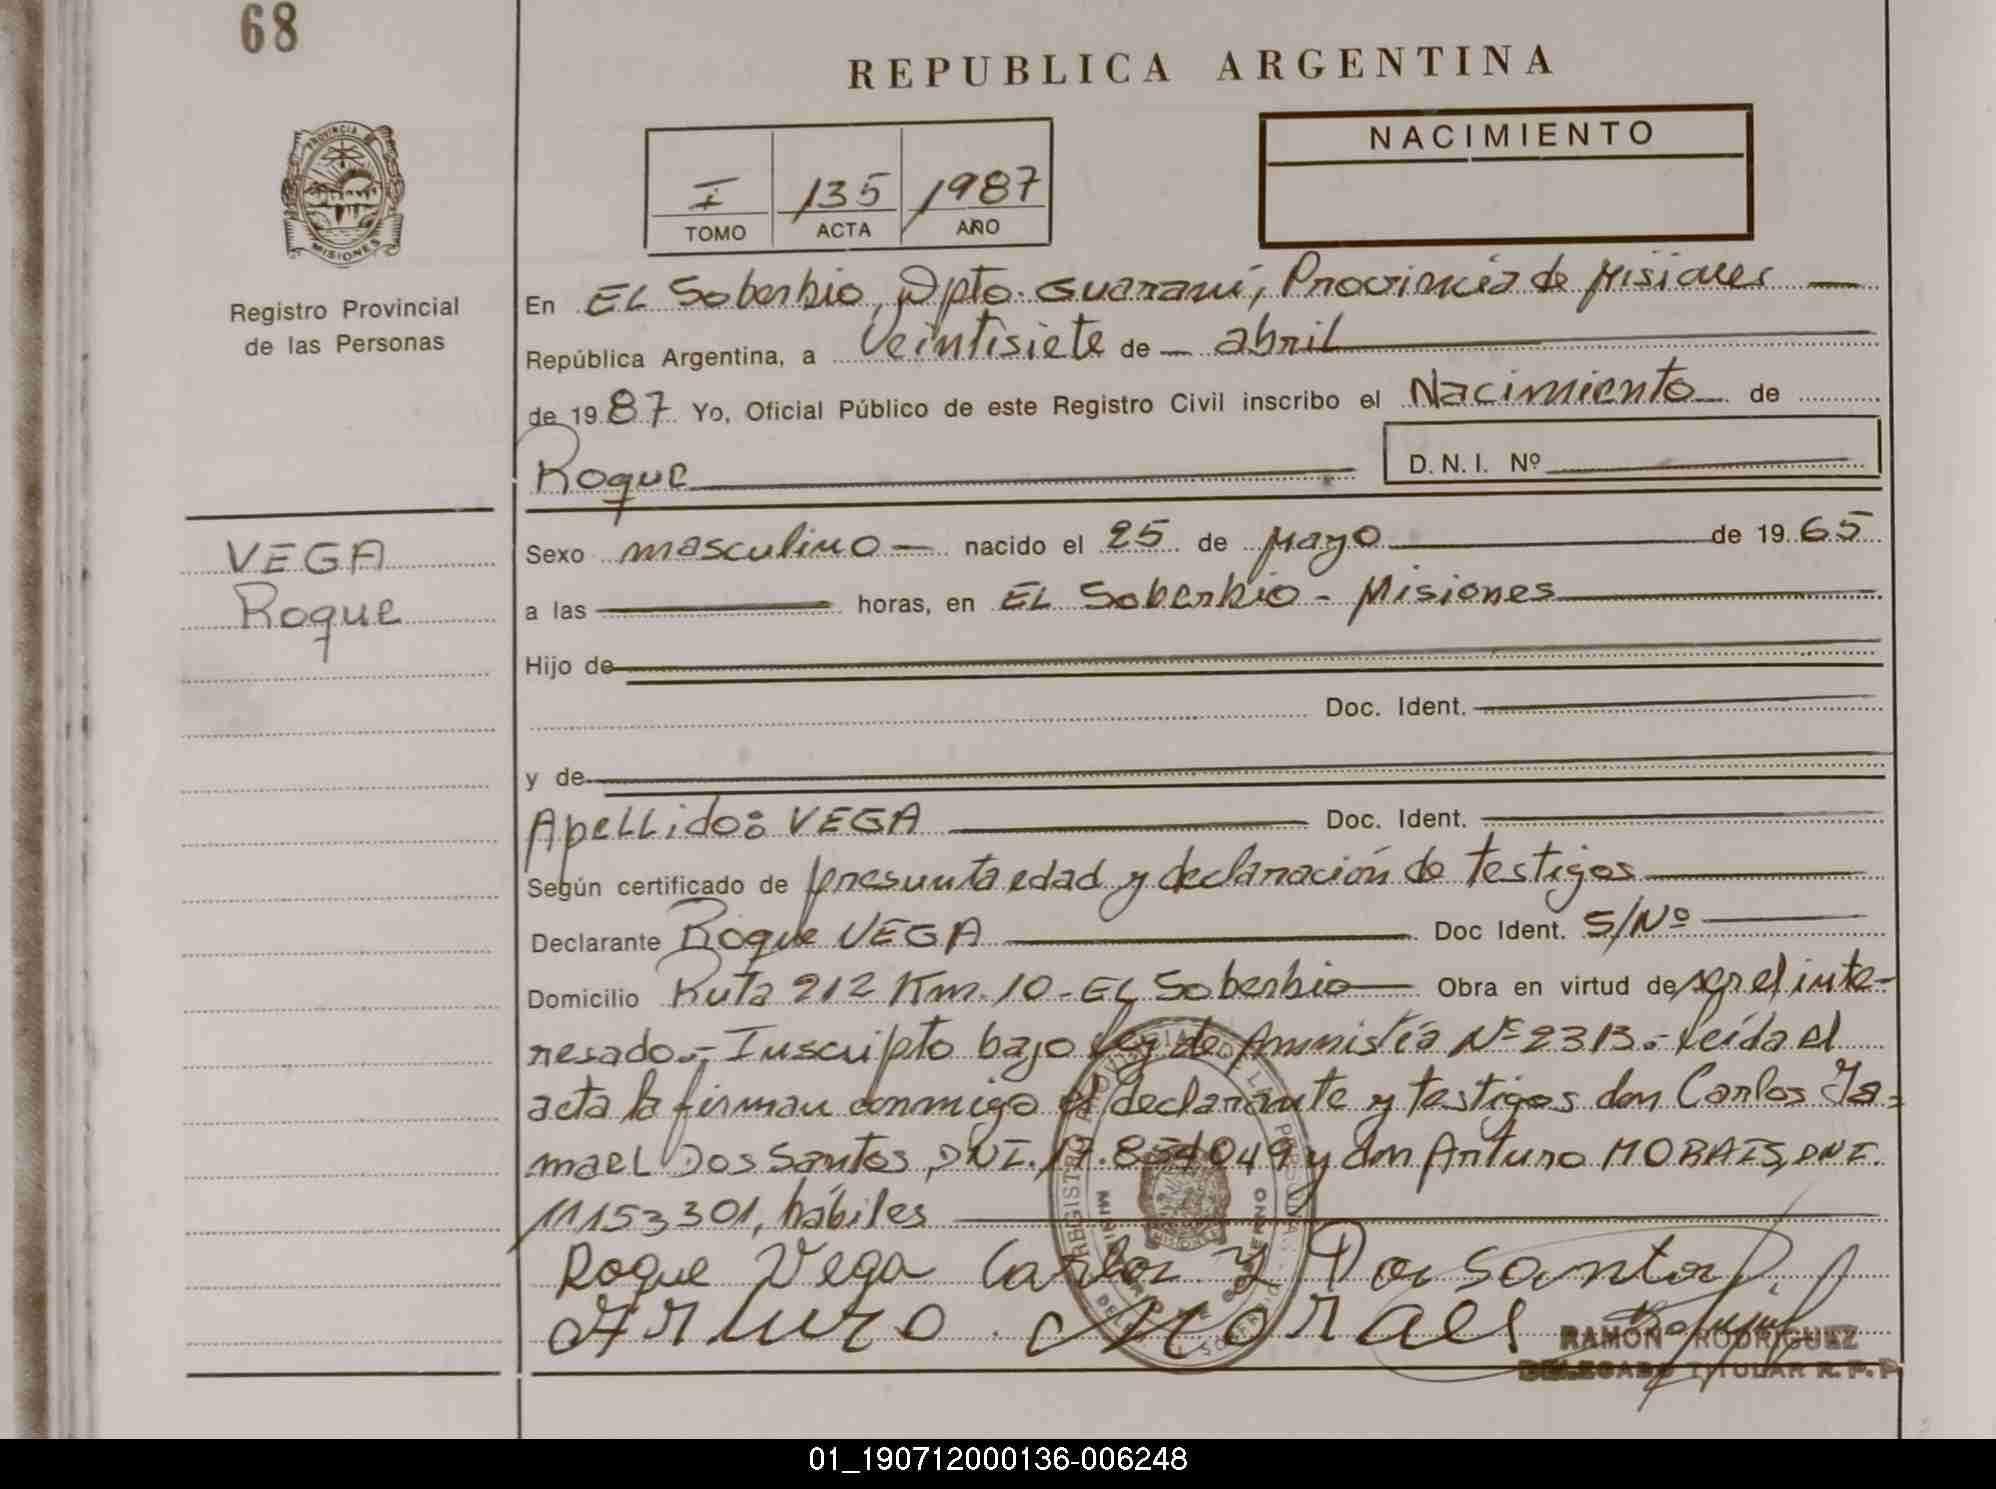 68
REPUBLICA ARGENTINA
PROVINCIA DE
MISIONES
Registro Provincial
de las Personas
I 135 1987
TOMO ACTA AÑO
NACIMIENTO
En EL Soberbio, Dpto. Guaraní, Provincia de Misiones
República Argentina, a Veintisiete de abril
de 1987 Yo, Oficial Público de este Registro Civil inscribo el Nacimiento de
Roque
D.N.I. Nº
VEGA
Roque
Sexo masculino nacido el 25 de Mayo de 1965
a las horas, en EL Soberbio - Misiones
Hijo de
Doc. Ident.
y de
Apellido: VEGA Doc. Ident.
Según certificado de presunta edad y declaración de testigos
Declarante Roque VEGA Doc Ident. S/Nº
Domicilio Ruta 212 Km. 10 - EL Soberbio Obra en virtud de ser el inte-
resado.- Inscripto bajo ley de Amnistía Nº 2313.- Leída el
acta la firman conmigo el declarante y testigos don Carlos Is-
mael Dos Santos, DNI. 17.854049 y don Arturo MORAIS, DNI.
11153301, hábiles
Roque Vega Carlos Y Dos santos
Arturo Moraes
RAMON RODRIGUEZ
DELEGADO TITULAR R.P.P.
01_190712000136-006248